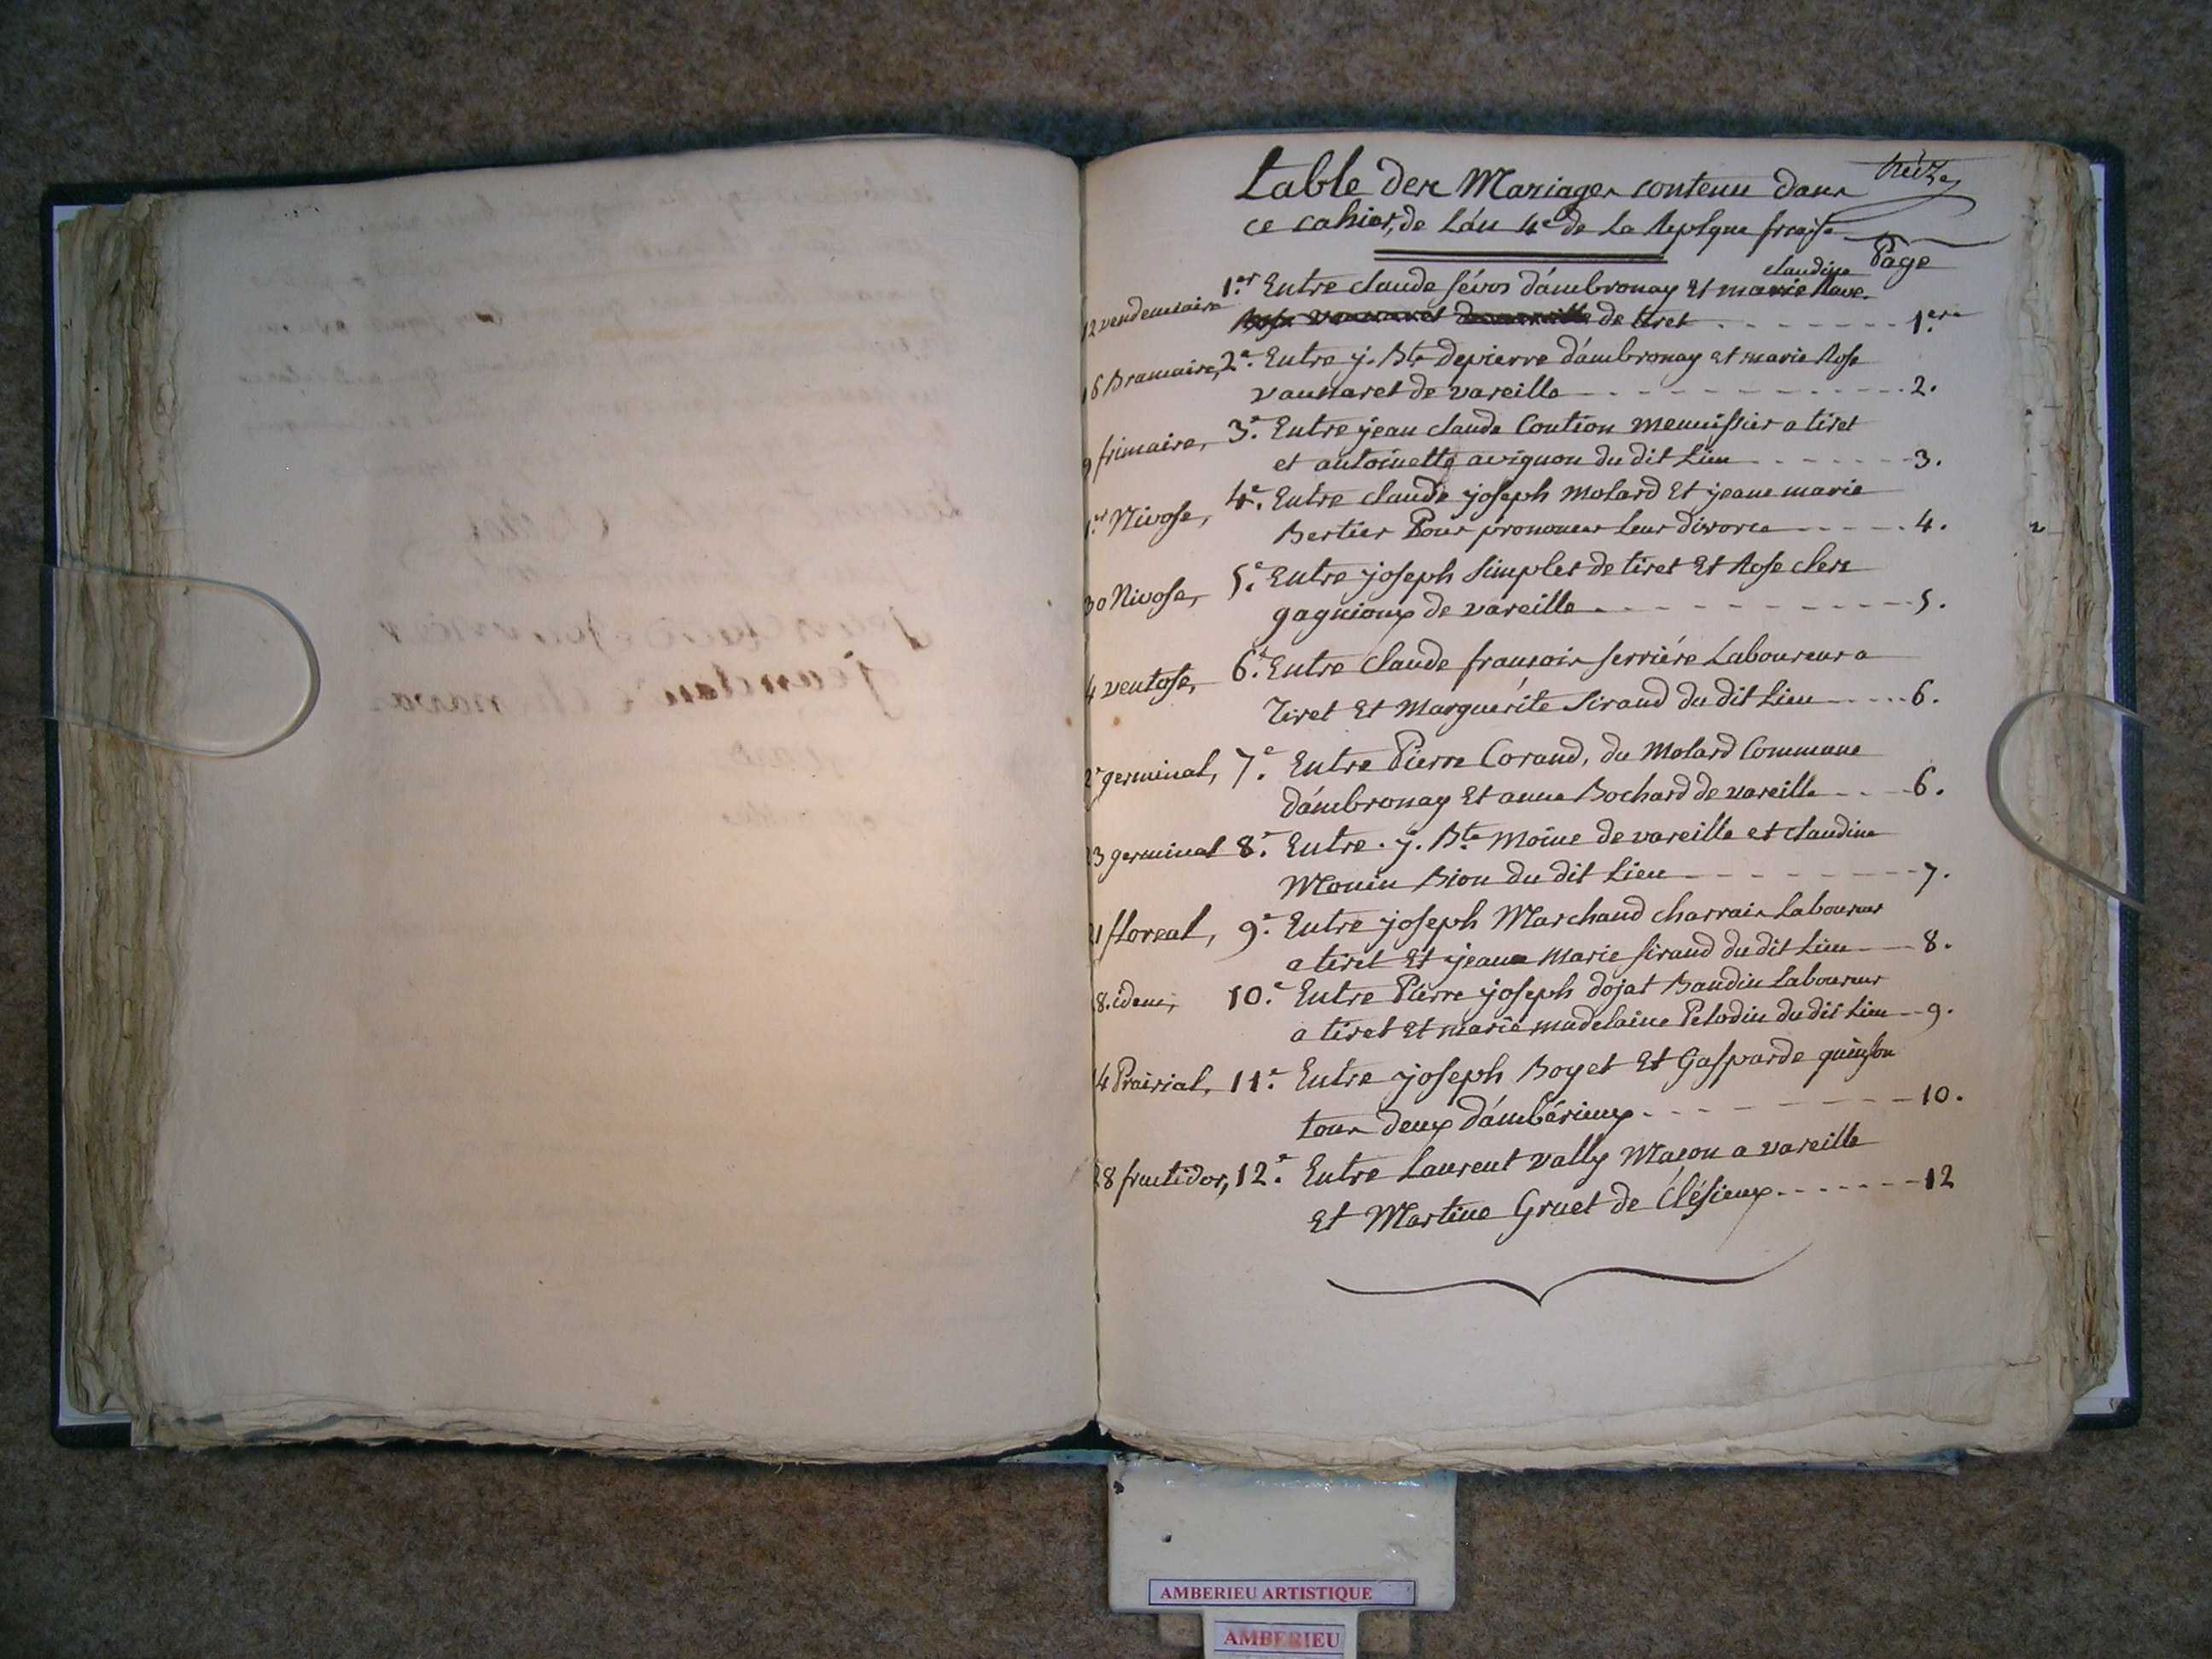 table des Mariages contenu dans
treize
ce cahier, de L'an 4e de La Replque frcaise
Page
claudine
12 vendemiaire 1.er Entre claude sévos d'ambronay Et marie Rave.
de tiret - - - - - - - 1ere
16 Brumaire, 2.e Entre j. Bte depierre d'ambronay et marie Rose
vausaret de vareille - - - - - - - 2.
9 frimaire, 3.e Entre jean claude Coution menuissier a tiret
et antoinette avignon du dit Lieu - - - - - - 3.
1.er Nivose, 4.e Entre claude joseph Molard Et jeane marie
Bertier Pour prononcer Leur divorce - - - - - 4.
30 Nivose, 5.e Entre joseph Simplet de tiret Et Rose clerc
gagnioux de vareille - - - - - - - 5.
4 ventose, 6.e Entre Claude francois ferriére Laboureur a
Tiret Et Marguérite Siraud du dit Lieu - - - - 6.
2e germinal, 7.e Entre Pierre Coraud, du Molard Commune
d'ambronay Et anne Bochard de vareille - - - 6.
23 germinal 8.e Entre . j. Bte Moine de vareille et claudine
Monin Bion du dit Lieu - - - - - - - 7.
21 floreal, 9.e Entre joseph Marchand charrais Laboureur
a tiret Et jeane Marie siraud du dit Lieu - - 8.
8. idem, 10.e Entre Pierre joseph dojat Baudin Laboureur
a tiret Et marie madelaine Pelodin du dit Lieu - - 9.
14 Prairial, 11.e Entre joseph Boyet Et Gasparde quinson
tous deux d'ambérieux - - - - - - - 10.
28 fructidor, 12.e Entre Laurent vally Macon a vareille
Et Martine Gruet de Clésieux - - - - - - - 12
AMBERIEU ARTISTIQUE
AMBERIEU